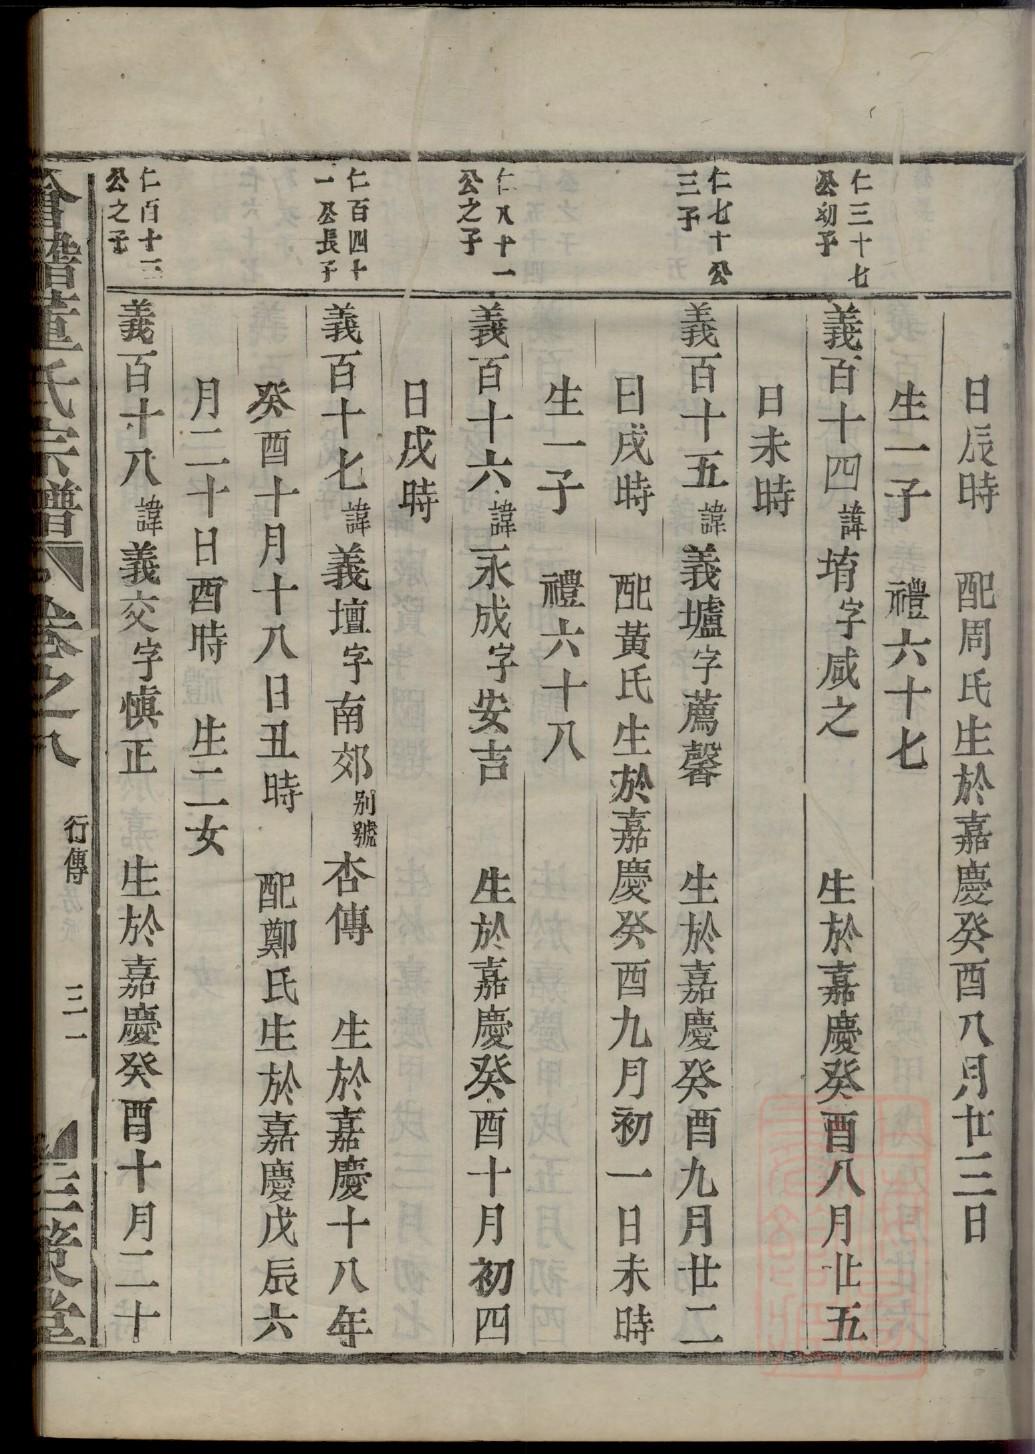 日辰時　配周氏生於嘉慶癸酉八月廿三日
生一子　禮六十七
仁三十七公幼子
義百十四諱堉字咸之　生於嘉慶癸酉八月廿五
日未時
仁七十公三子
義百十五諱義壚字薦馨　生於嘉慶癸酉九月廿二
日戌時　配黃氏生於嘉慶癸酉九月初一日未時
生一子　禮六十八
仁八十一公之子
義百十六諱永成字安吉　生於嘉慶癸酉十月初四
日戌時
仁百四十一公長子
義百十七諱義壇字南郊別號杏傳　生於嘉慶十八年
癸酉十月十八日丑時　配鄭氏生於嘉慶戊辰六
月二十日酉時　生二女
仁百十三公之子
義百十八諱義交字愼正　生於嘉慶癸酉十月二十
會稽董氏宗譜　卷之八　行傳　三一　三策堂